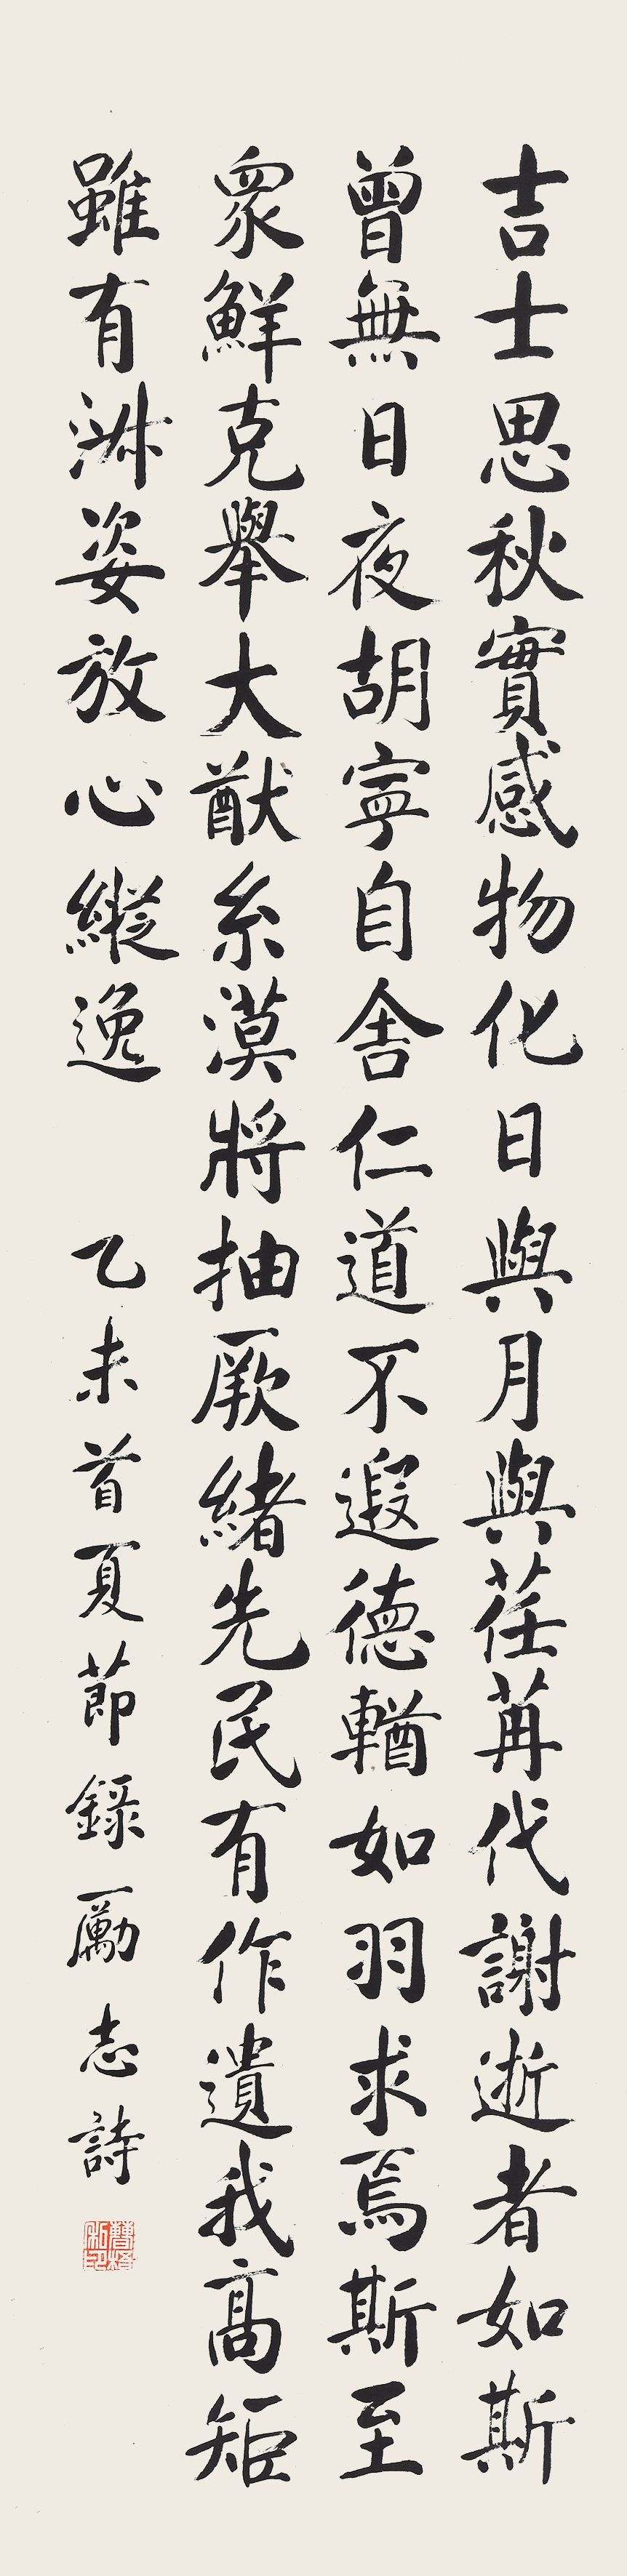 吉士思秋實感物化日與月與荏苒代謝逝者如斯
曾無日夜胡寧自舍仁道不遐德輶如羽求焉斯至
眾鮮克舉大猷糸漠將抽厥緒先民有作遺我高矩
雖有淋姿放心縱逸
乙未首夏節錄勵志詩